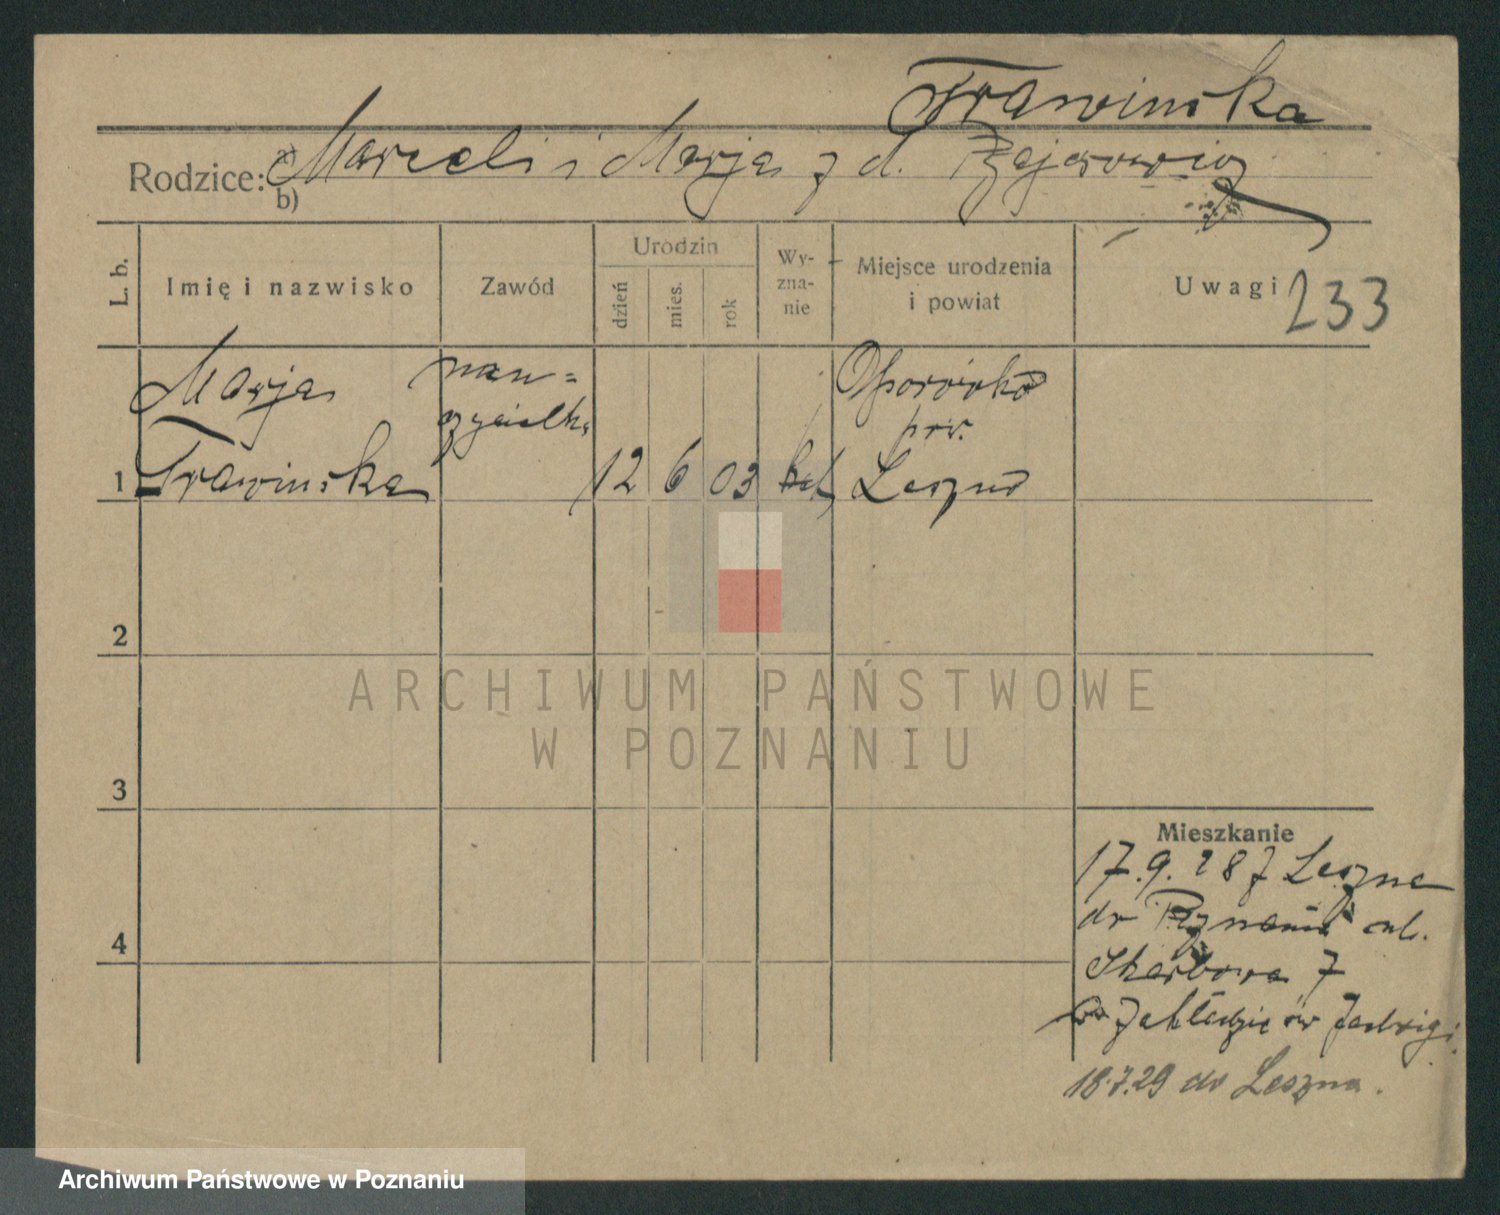 Trawinska
Rodzice: a) Marceli i Marja z d.
b)
L. b. Imię i nazwisko Zawód Urodzin dzień mies. rok Wy-zna-nie Miejsce urodzenia i powiat Uwagi 233
Marja nau=
czycielka
pow.
1 Trawinska 12 6 03 kat. Leszno
2
ARCHIWUM PAŃSTWOWE
W POZNANIU
3
Mieszkanie
17.9.28 z Leszna
do Poznania ul.
4
Skarbowa 7
w Zakładzie św Jadwigi
18.7.29 do Leszna.
Archiwum Państwowe w Poznaniu